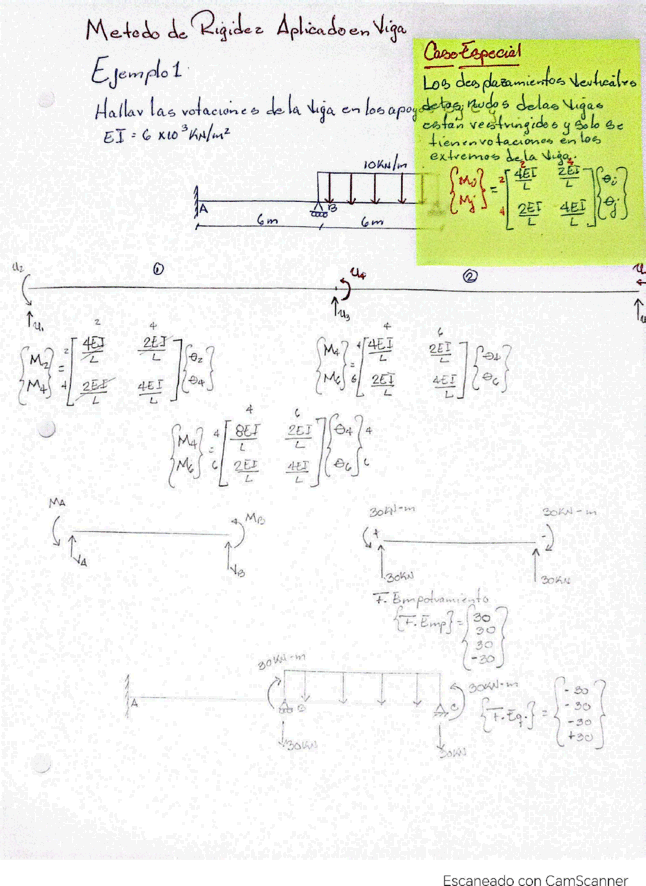 Metodo de Rigidez Aplicado en Viga
Ejemplo 1
Hallar las rotaciones de la viga en los apoyos
EI = 6 x10³ KN/m²
Caso Especial
Los desplazamientos verticales
de los nudos de las vigas
están restringidos y solo se
tienen rotaciones en los
extremos de la viga.
2 4
{Mi Mj} = 2 4 [4EI/L 2EI/L 2EI/L 4EI/L] {θi θj}
10KN/m
A B
6m 6m
u2 ① u4 ② u
u1 u3 u
2 4
{M2 M4} = 2 4 [4EI/L 2EI/L 2EI/L 4EI/L] {θ2 θ4}
4 6
{M4 M6} = 4 6 [4EI/L 2EI/L 2EI/L 4EI/L] {θ4 θ6}
4 6
{M4 M6} = 4 6 [8EI/L 2EI/L 2EI/L 4EI/L] {θ4 θ6} 4 6
MA MB
VA VB
30KN-m 30KN-m
+ -
30KN 30KN
F. Empotramiento
{F. Emp} = {30 30 30 -30}
30KN-m 30KN-m
A B C
30KN 30KN
{F. Eq.} = {-30 -30 -30 +30}
Escaneado con CamScanner